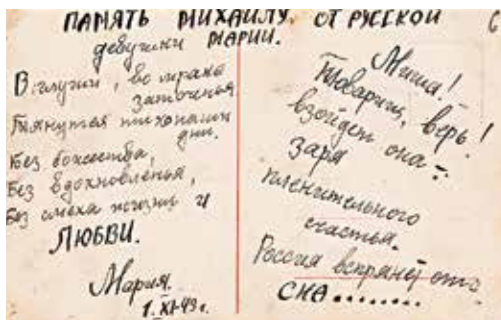 ПАМЯТЬ МИХАИЛУ. ОТ РУССКОЙ
девушки МАРИИ.
В глуши, во мраке
заточенья
Тянутся тихо наши
дни.
Без божества,
Без вдохновенья,
Без смеха жизни и
ЛЮБВИ.
Мария.
1.XI-43г.
Миша!
Товарищ, верь!
взойдет она -
Заря
пленительного
счастья.
Россия вспрянет ото
СНА........